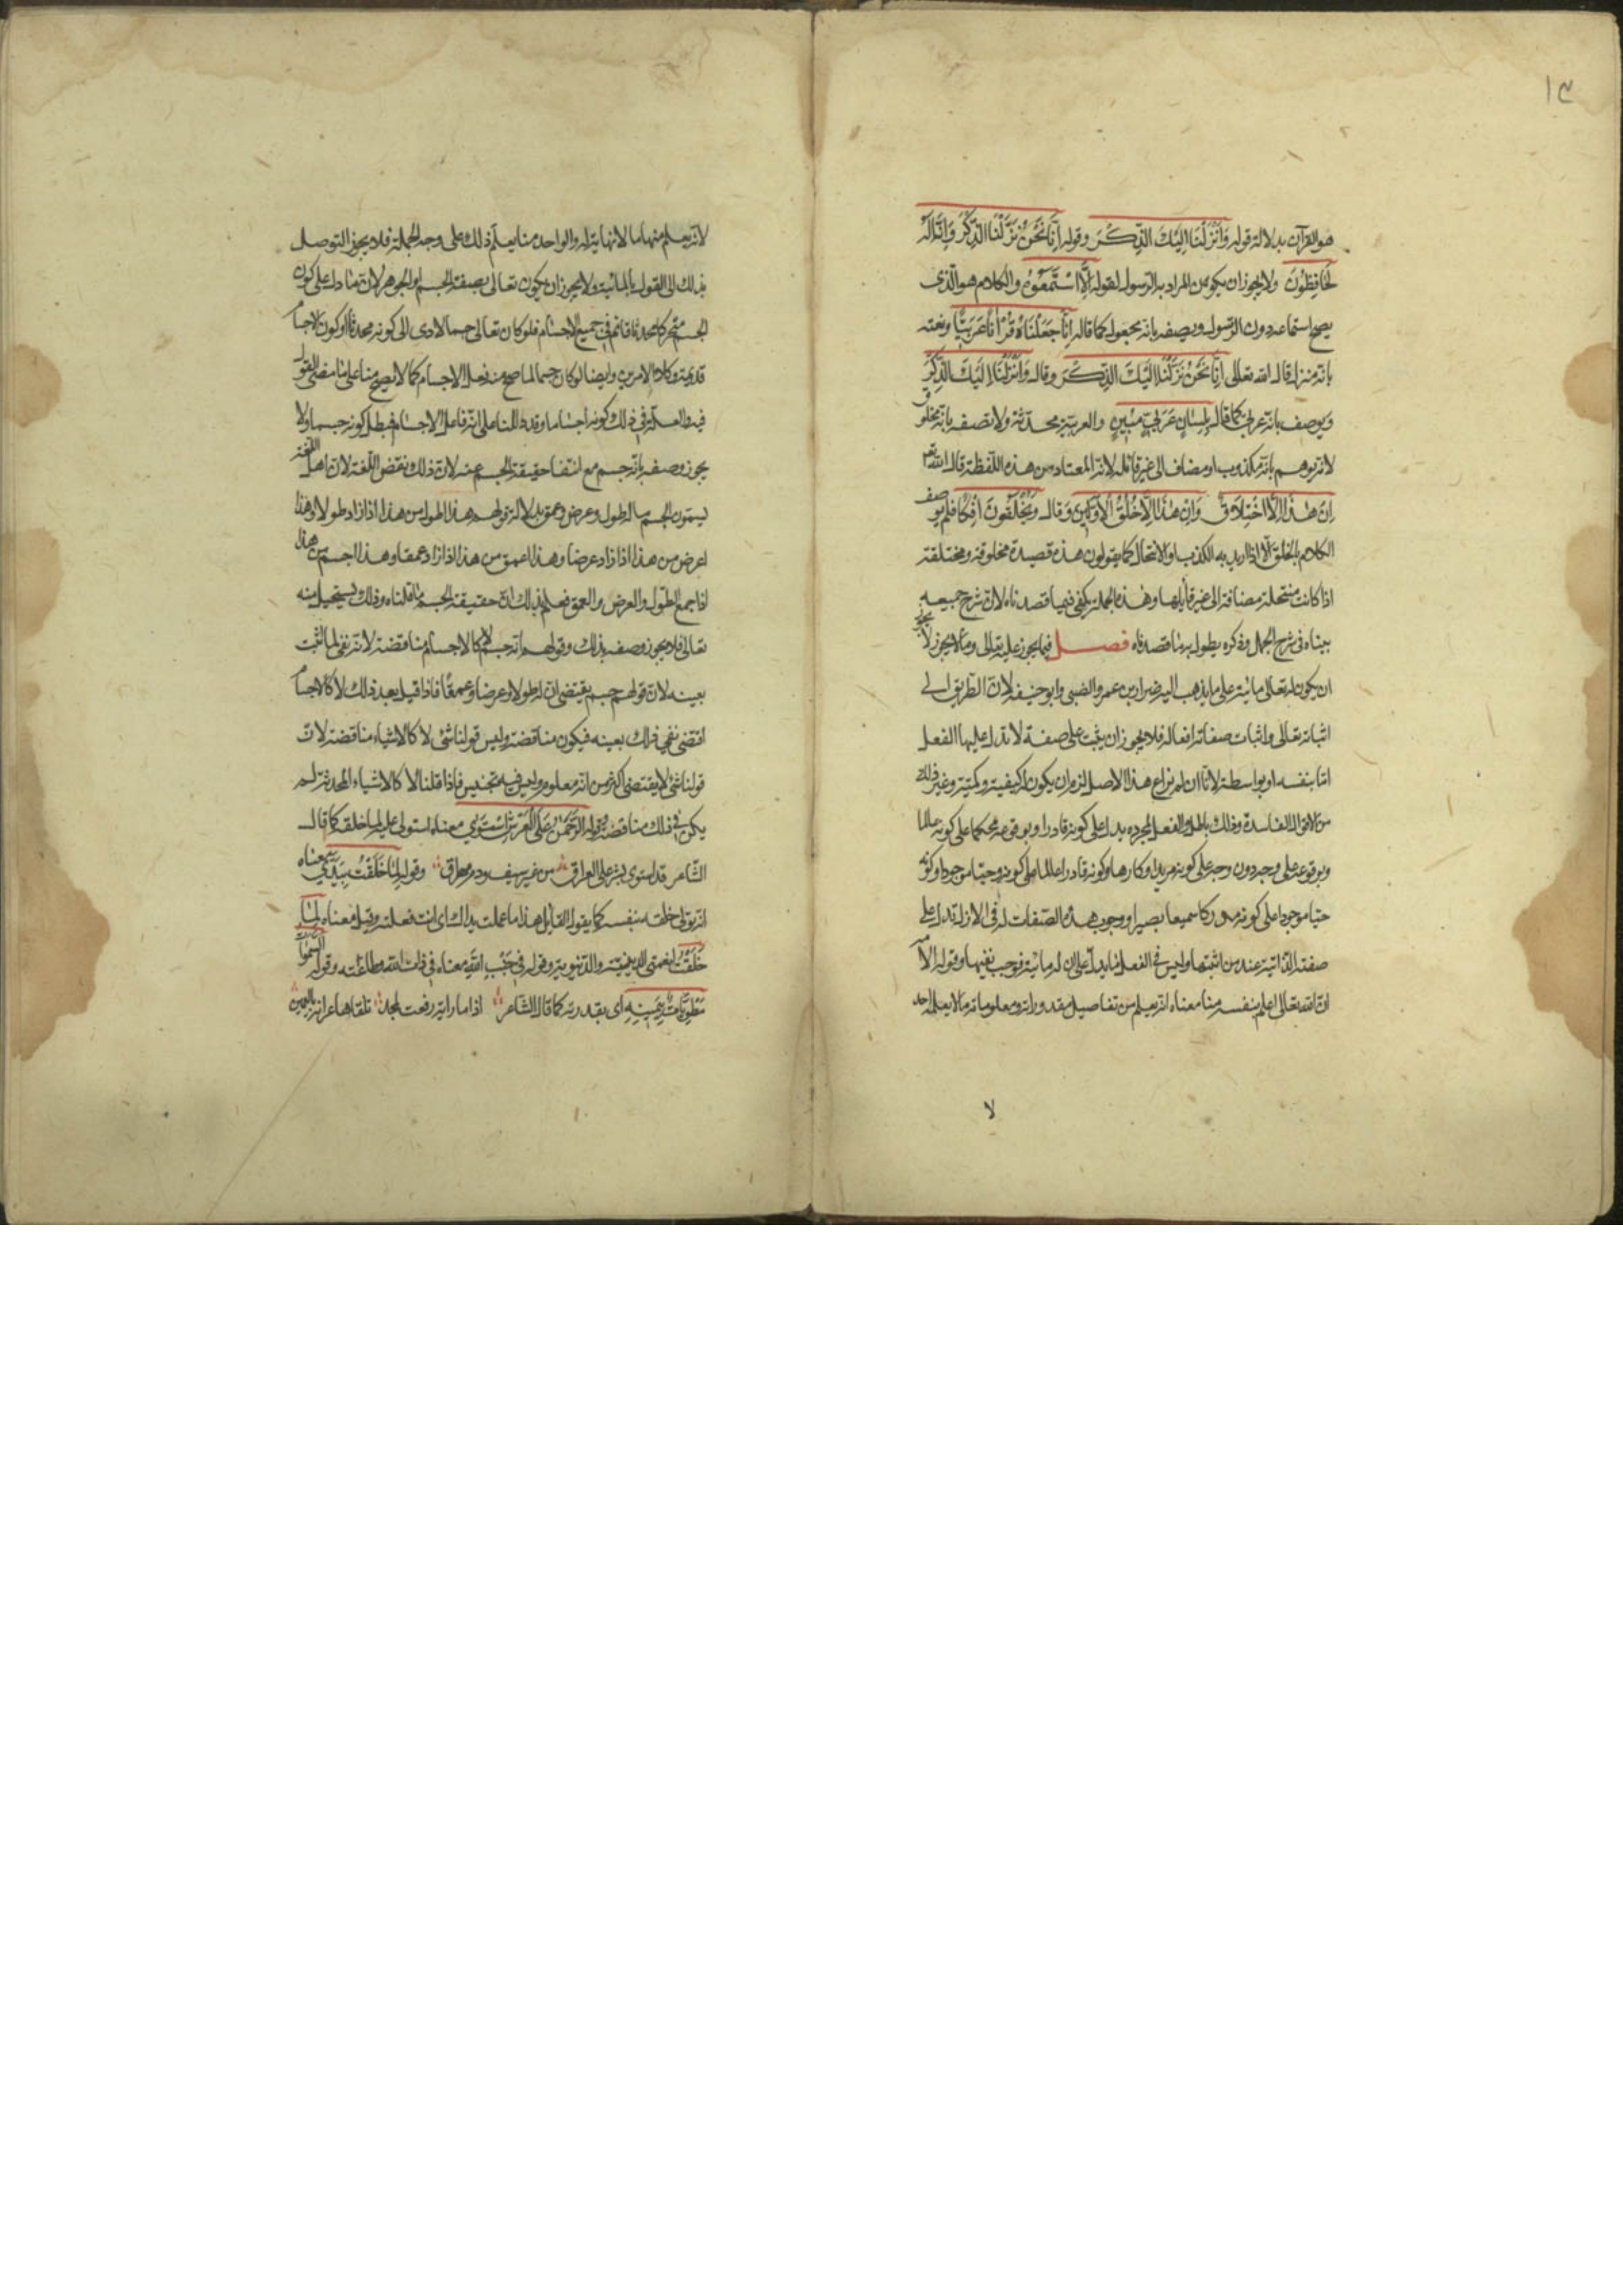 ١٣
هو القرآن بدلالة قوله وَاَنْزَلْنَا اِلَيْكَ الذِّكْرَ وقوله اِنَّا نَحْنُ نَزَّلْنَا الذِّكْرَ وَاِنَّا لَهُ
لَحَافِظُونَ ولا يجوز ان يكون المراد به الرسول لقوله اِلَّا اسْتَمَعُوهُ والكلام هو الّذى
يصح استماعه دون الرّسول ويصفه بانّه مجعول كما قال اِنَّا جَعَلْنَاهُ قُرْاٰنًا عَرَبِيًّا ونعته
بانّه منزل قال الله تعالى اِنَّا نَحْنُ نَزَّلْنَا اِلَيْكَ الذِّكْرَ وقال وَاَنْزَلْنَا اِلَيْكَ الذِّكْرَ
ويوصف بانّه عربىّ كما قال بِلِسَانٍ عَرَبِيٍّ مُبِينٍ والعربيّة محدثة ولا نصفه بانّه مخلوق
لانّه يوهم بانّه مكذوب او مضاف الى غير قائله لانّه المعتاد من هذه اللّفظة قال الله تعم
اِنْ هٰذَا اِلَّا اخْتِلَاقٌ وَاِنْ هٰذَا اِلَّا خُلُقُ الْاَوَّلِينَ وَقال وَتَخْلُقُونَ اِفْكًا فلم يوصف
الكلام بالخلق الّا اذا اريد به الكذب او الانتحال كما يقولون هذه قصيدة مخلوقة ومختلقة
اذا كانت منتحلة مضافة الى غير قائلها وهذه الجملة يكفى فيها قصدناه لانّ شرح جميعه
بيناه فى شرح الجمل وذكره يطول به ما قصدناه فصل فيما يجوز عليه تعالى وما لا يجوز لا يجوز
ان يكون له تعالى مائيّة على ما يذهب اليه ضرار بن عمرو الضبى وابو حنيفه لانّ الطّريق الى
اثباته تعالى واثبات صفاته افعاله فلا يجوز ان يثبت على صفة لا تدل عليها الفعل
امّا بنفسه او بواسطة لانّا ان لم نراع هذا الاصل لزم ان يكون له كيفية وكميّة وغير ذلك
من الاقوال الفاسدة وذلك باطل والفعل بمجرده يدل على كونه قادرا وبوقوعه محكما على كونه عالما
وبوقوعه على وجه دون وجه على كونه مريدا وكارها وكونه قادرا عالما على كونه حيّا موجودا وكونه
حيّا موجودا على كونه مدركا سميعا بصيرا ووجوب هذه الصّفات له فى الازل تدل على
صفته الذّاتية عند من اثبتها وليس فى الفعل ما يدلّ على ان له مائيّة فوجب نفيها وقول الامّه
انّ الله تعالى اعلم بنفسه منا معناه انّه يعلم من تفاصيل مقدوراته ومعلوماته ما لا يعلمه احد
لا
لانّه يعلم منها ما لا نهاية له والواحد منا يعلم ذلك على وجه الجملة فلا يجوز التوصل
بذلك الى القول بالمائيّة ولا يجوز ان يكون تعالى بصفة الجسم او الجوهر لانّ ما دل على كون
الجسم متحركا محدثا قائم فى جميع الاجسام فلو كان تعالى جسما لادى الى كونه محدثا او كون الاجسام
قديمة وكلا الامرين وايضا لو كان جسما لما صح منه فعل الاجسام كما لا يصح منا على ما مضى القول
فيه والعلة فى ذلك كونه اجساما وقد دللنا على انّه فاعل الاجسام فبطل كونه جسما ولا
يجوز وصفه بانّه جسم مع انتفا حقيقة الجسم عنه لانّ ذلك نقض اللّغة لانّ اهل اللّغة
يسمّون الجسم ما له طول وعرض وعمق بدلالة قولهم هذا اطول من هذا اذا زاد طولا وهذا
اعرض من هذا اذا زاد عرضا وهذا اعمق من هذا اذا زاد عمقا وهذا اجسم من هذا
اذا جمع الطّول والعرض والعمق فعلم بذلك انّ حقيقة الجسم ما قلناه وذلك يستحيل منه
تعالى فلا يجوز وصفه بذلك وقولهم انّه جسم لا كالاجسام مناقضة لانّه نفى لما اثبت
بعينه لانّ قولهم جسم يقتضى انّ له طولا وعرضا وعمقا فاذا قيل بعد ذلك لا كالاجسام
اقتضى نفى ذلك بعينه فيكون مناقضة وليس قولنا شئ لا كالاشياء مناقضة لانّ
قولنا شئ لا يقتضى اكثر من انّه معلوم وليس فيه تجنيس فاذا قلنا لا كالاشياء المحدثة لم
يكن فى ذلك مناقضة وقوله اَلرَّحْمٰنُ عَلَى الْعَرْشِ اسْتَوٰى معناه استولى عليه لما خلقه كما قال
الشّاعر قد استوى بشر على العراق من غير سيف ودم مهراق وقوله لِمَا خَلَقْتُ بِيَدَيَّ معناه
انّه تولى خلقه بنفسه كما يقول القايل هذا ما عملت يداك اى انت فعلته وقيل معناه لما
خَلَقْتُ لنعمتى الدينيّة والدّنيويّة وقوله فى جَنْبِ اللهِ معناه فى ذات الله وطاعته وقوله السموات
مَطْوِيَّاتٌ بِيَمِينِهِ اى بقدرته كما قال الشّاعر اذا ما راية رفعت لمجد تلقاها عرابة باليمين